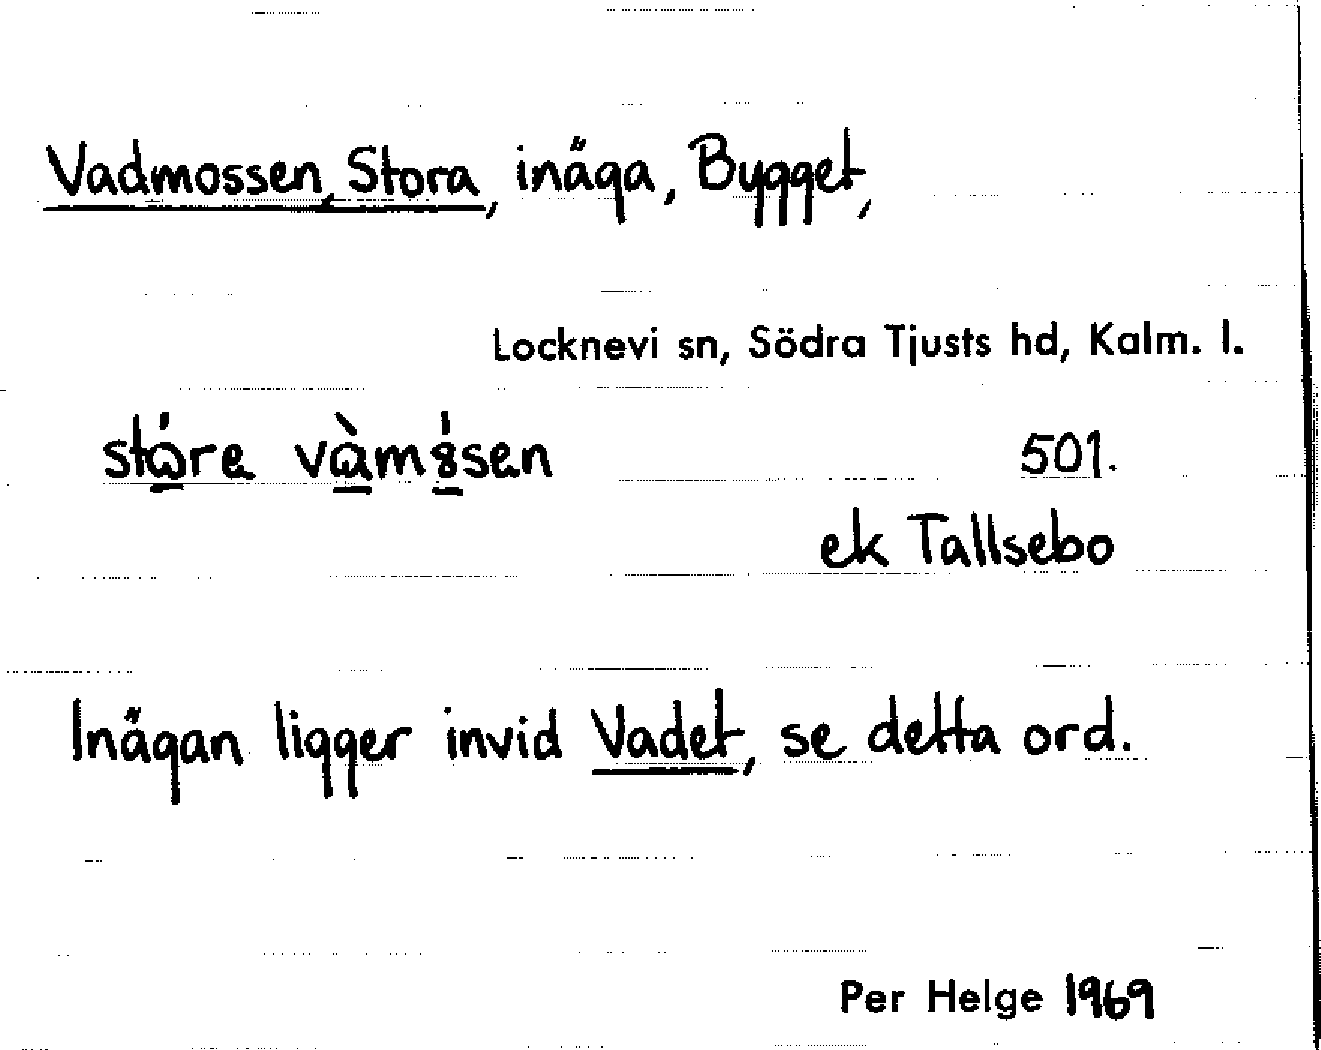 Vadmossen, Stora, inäga, Bygget,
Locknevi sn, Södra Tjusts hd, Kalm. l.
501.
ek Tallsebo
Inägan ligger invid Vadet, se detta ord.
Per Helge 1969